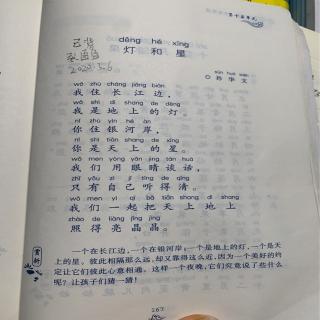 第十五单元
已背
2023.5.6
dēng hé xīng
灯和星
sūn huá wén
孙华文
wǒ zhù cháng jiāng biān
我住长江边，
wǒ shì dì shang de dēng
我是地上的灯。
nǐ zhù yín hé àn
你住银河岸，
nǐ shì tiān shang de xīng
你是天上的星。
wǒ men yòng yǎn jīng tán huà
我们用眼睛谈话，
zhǐ yǒu zì jǐ tīng de qīng
只有自己听得清。
wǒ men yì qǐ bǎ tiān shang dì shang
我们一起把天上地上
zhào de liàng jīng jīng
照得亮晶晶。
赏析
一个在长江边，一个在银河岸；一个是地上的灯，一个是天
上的星。彼此相隔那么远，却又靠得这么近，因为一个美好的约
定让它们彼此心意相通。这样一个夜晚，它们究竟说了些什么
呢？让孩子们猜一猜！
267